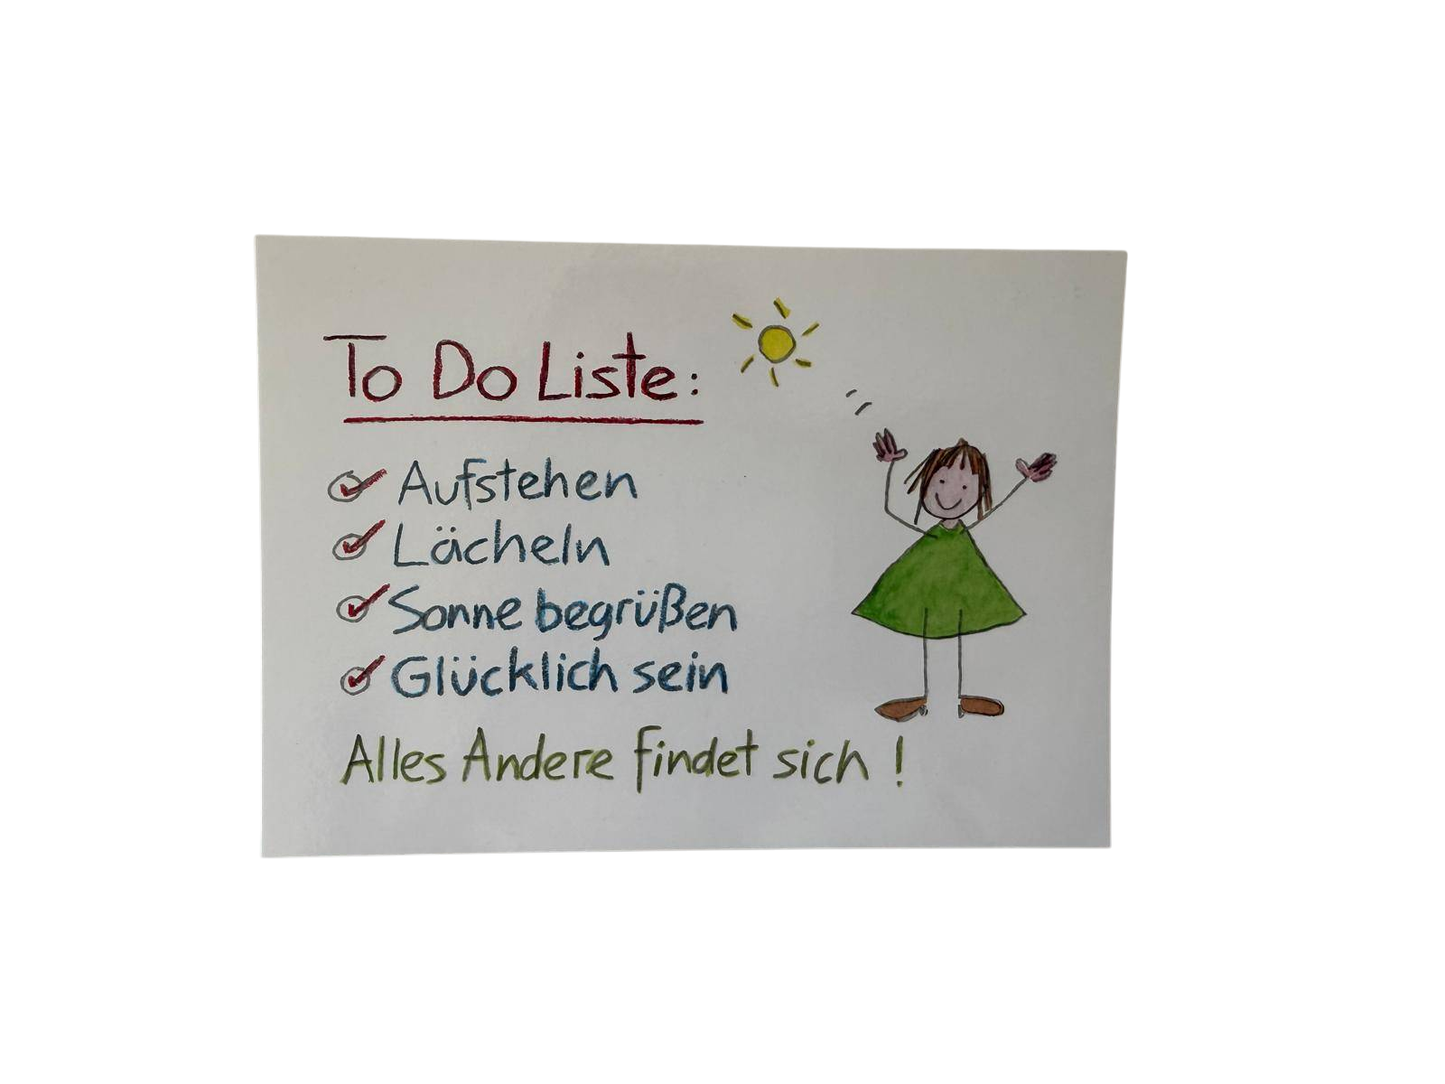 To Do Liste:
Aufstehen
Lächeln
Sonne begrüßen
Glücklich sein
Alles Andere findet sich !